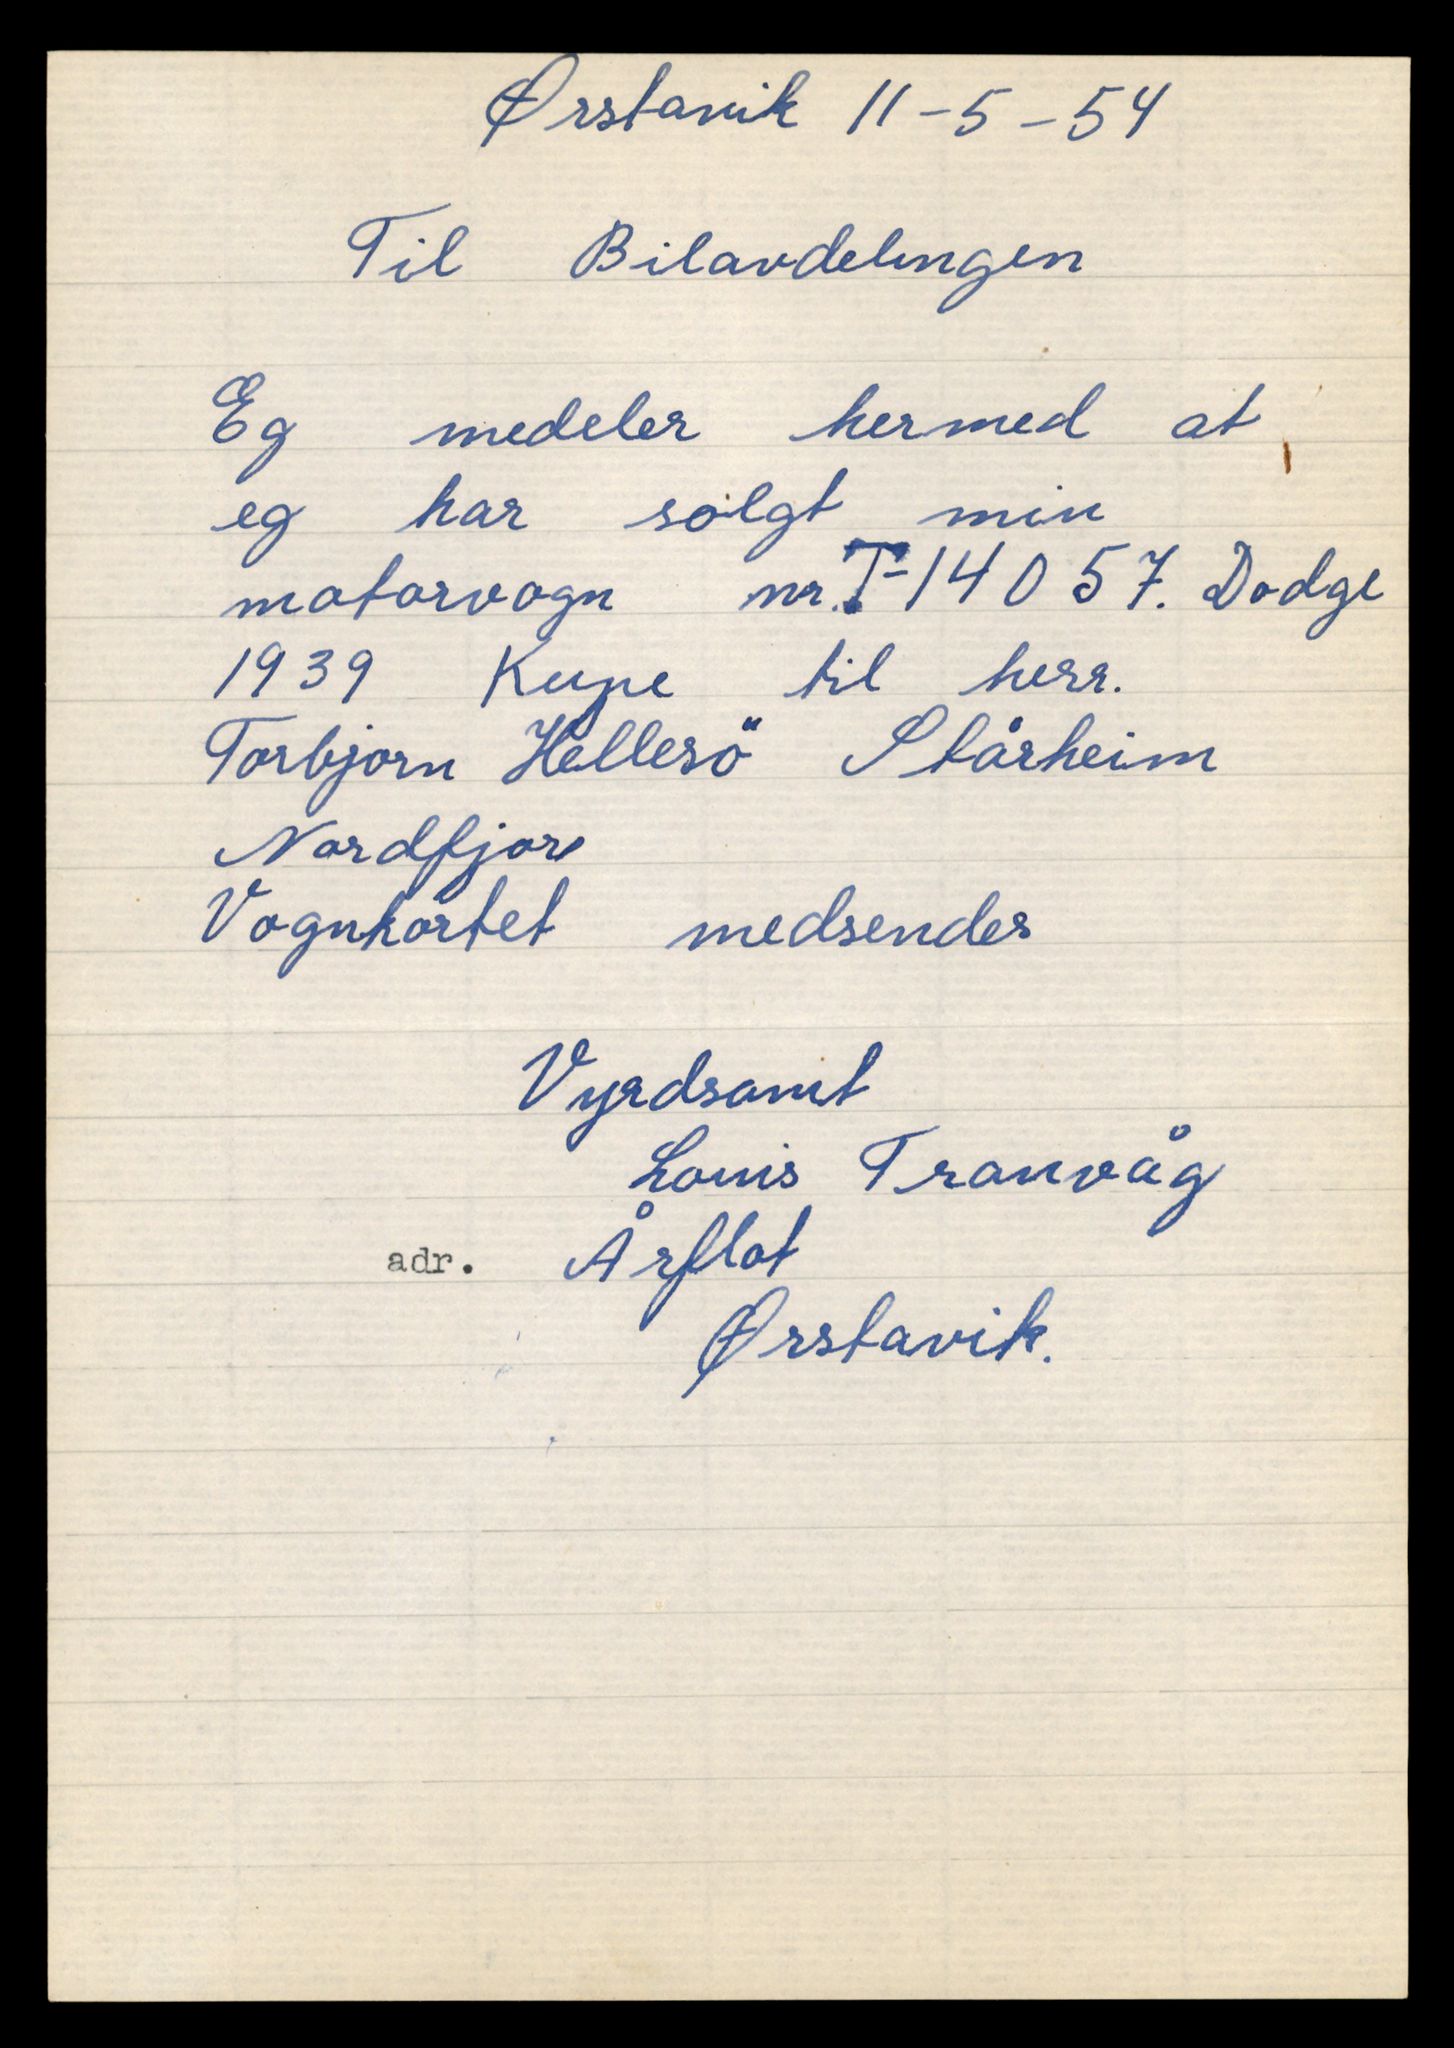 Ørstavik 11-5-54
Til Bilavdelingen
Eg medeler hermed at
eg har solgt min
motorvogn nr. T-14057. Dodge
1939 Kupe til herr.
Torbjorn Hellesö Stårheim
Nordfjord
Vognkortet medsendes
Vyrdsamt
Louis Tranvåg
adr. Årflot
Ørstavik.